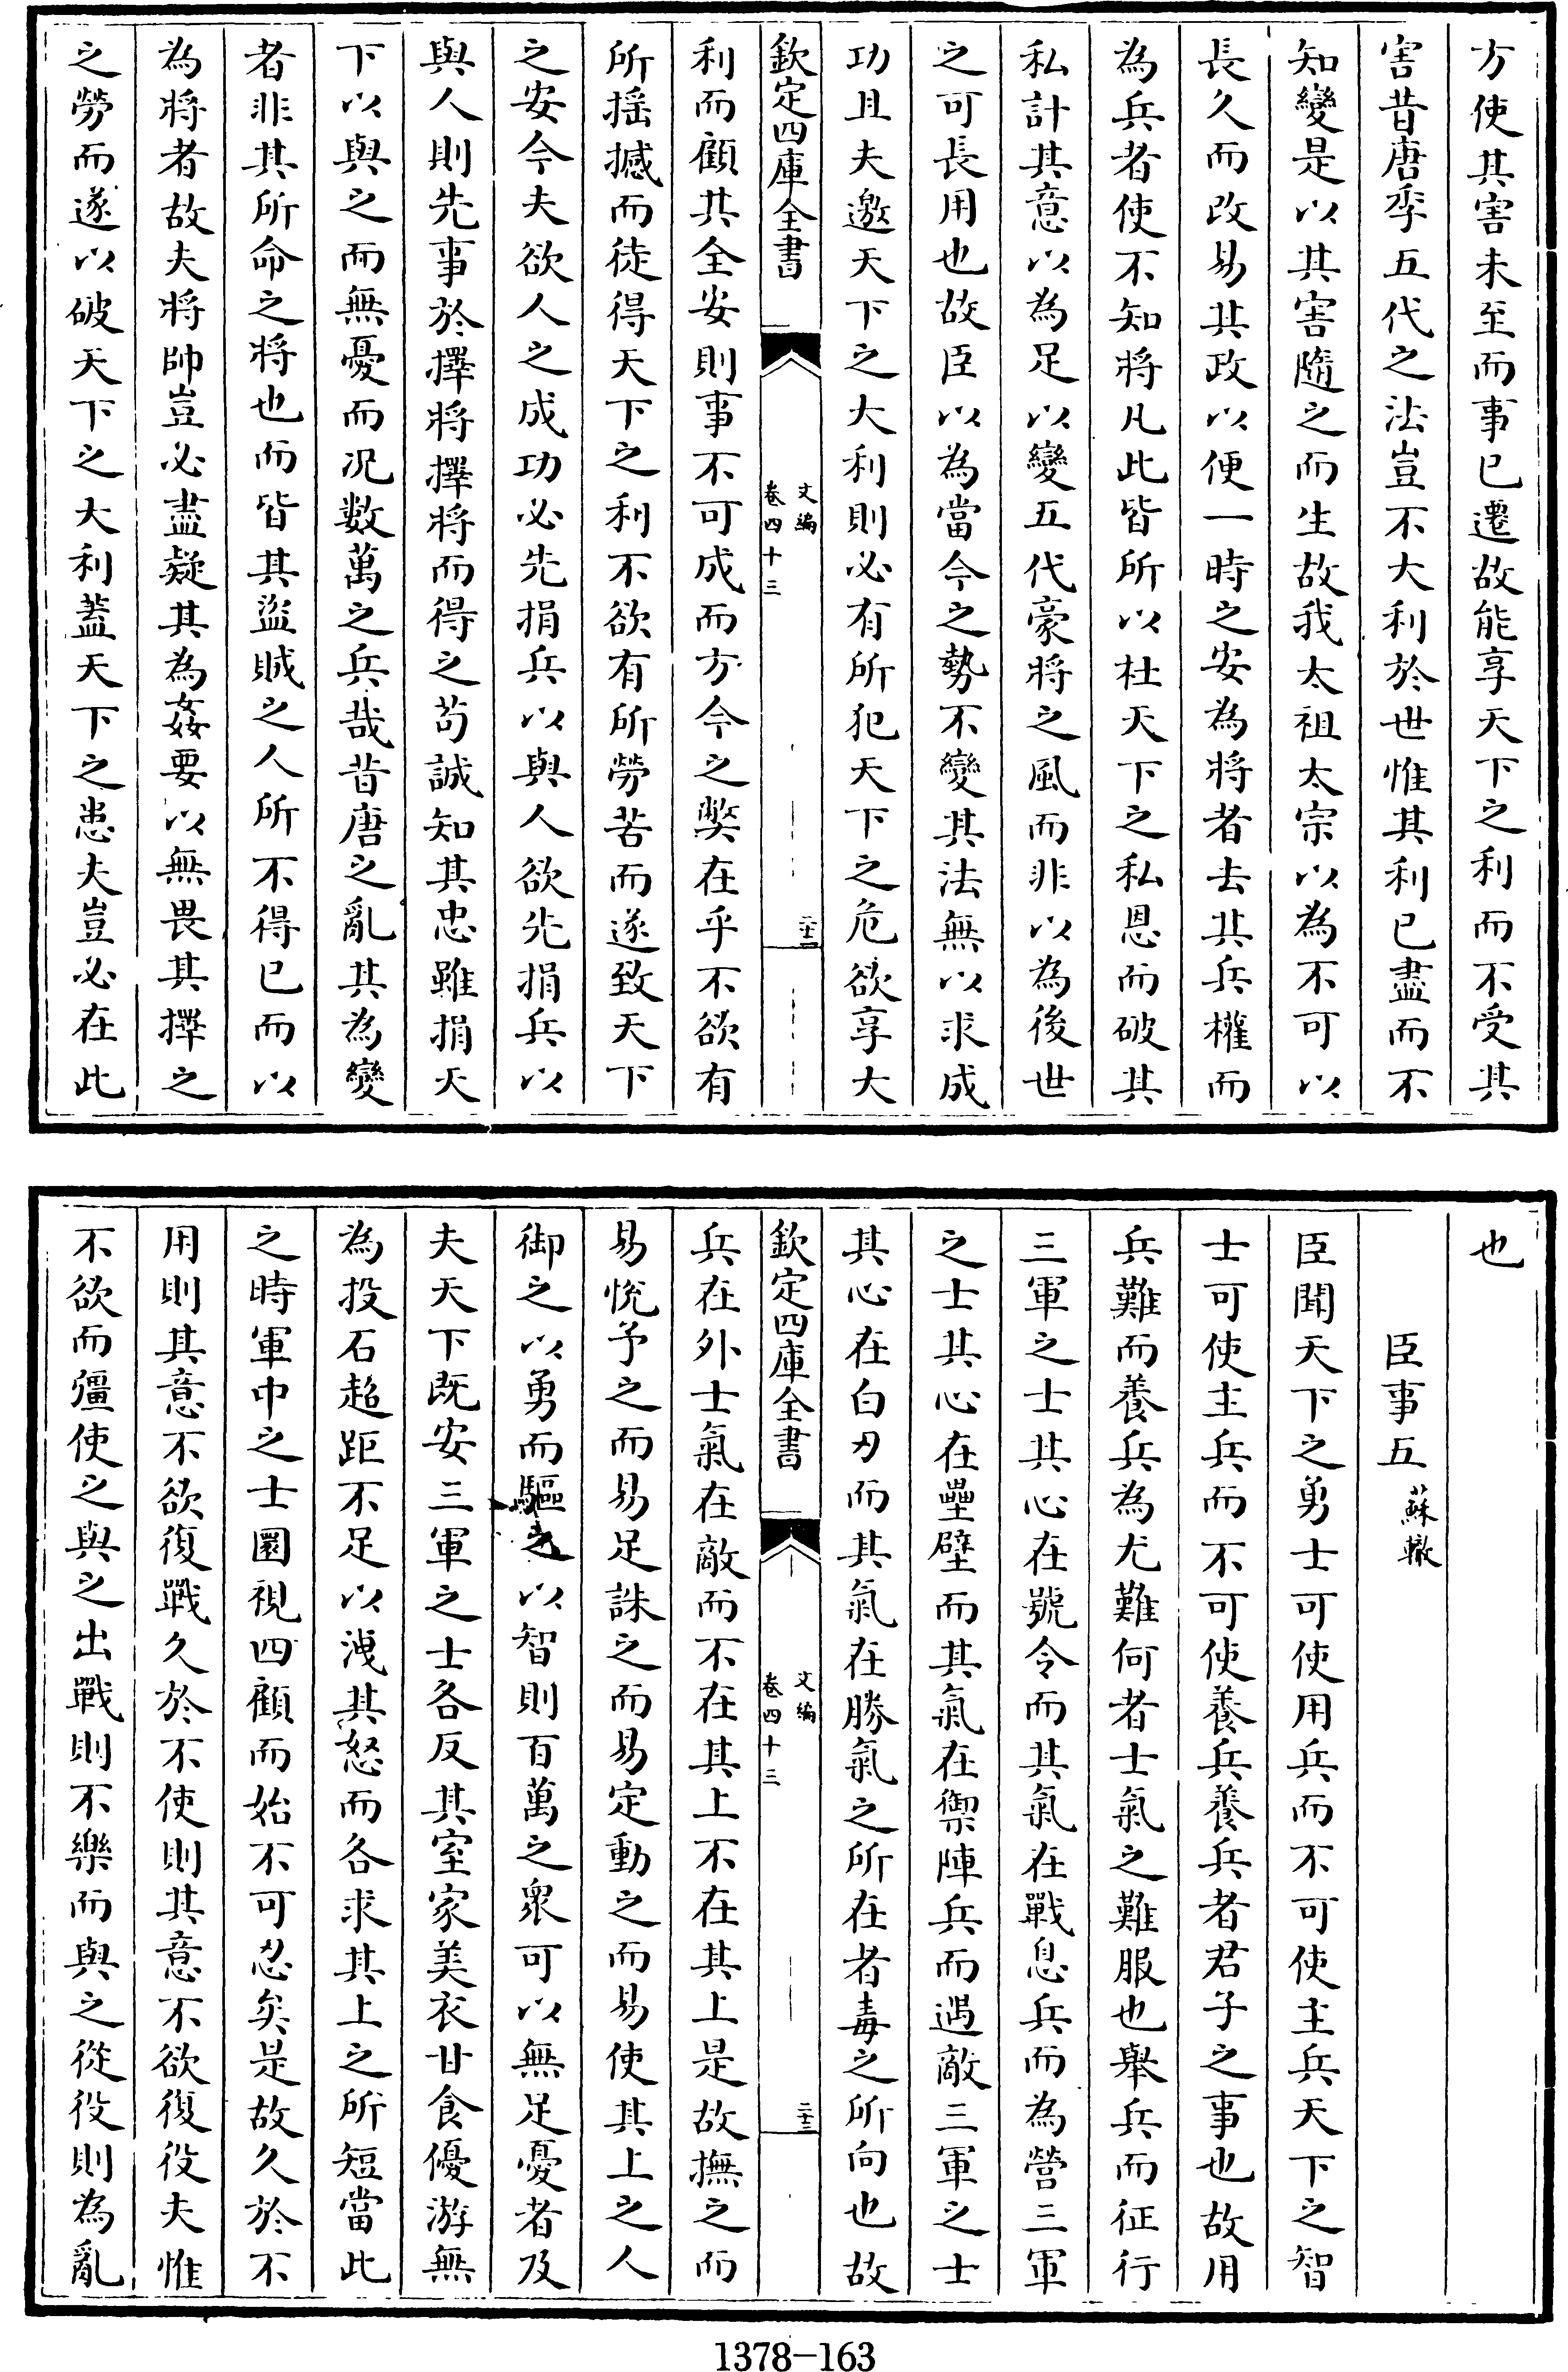 方使其害未至而事已遷故能享天下之利而不受其
害昔唐季五代之法豈不大利於世惟其利已盡而不
知變是以其害隨之而生故我太祖太宗以為不可以
長久而改易其政以便一時之安為將者去其兵權而
為兵者使不知將凡此皆所以杜天下之私恩而破其
私計其意以為足以變五代豪將之風而非以為後世
之可長用也故臣以為當今之勢不變其法無以求成
功且夫邀天下之大利則必有所犯天下之危欲享大
欽定四庫全書
文編
卷四十三
二十二
利而顧其全安則事不可成而方今之弊在乎不欲有
所搖撼而徒得天下之利不欲有所勞苦而遂致天下
之安今夫欲人之成功必先捐兵以與人欲先捐兵以
與人則先事於擇將擇將而得之苟誠知其忠雖捐天
下以與之而無憂而况數萬之兵哉昔唐之亂其為變
者非其所命之將也而皆其盜賊之人所不得已而以
為將者故夫將帥豈必盡疑其為姦要以無畏其擇之
之勞而遂以破天下之大利蓋天下之患夫豈必在此
也
臣事五 蘇轍
臣聞天下之勇士可使用兵而不可使主兵天下之智
士可使主兵而不可使養兵養兵者君子之事也故用
兵難而養兵為尤難何者士氣之難服也舉兵而征行
三軍之士其心在號令而其氣在戰息兵而為營三軍
之士其心在壘壁而其氣在禦陣兵而遇敵三軍之士
其心在白刃而其氣在勝氣之所在者毒之所向也故
欽定四庫全書
文編
卷四十三
二十三
兵在外士氣在敵而不在其上不在其上是故撫之而
易悅予之而易足誅之而易定動之而易使其上之人
御之以勇而驅之以智則百萬之衆可以無足憂者及
夫天下既安三軍之士各反其室家美衣甘食優游無
為投石超距不足以洩其怒而各求其上之所短當此
之時軍中之士圜視四顧而始不可忍矣是故久於不
用則其意不欲復戰久於不使則其意不欲復役夫惟
不欲而彊使之與之出戰則不樂而與之從役則為亂
1378-163